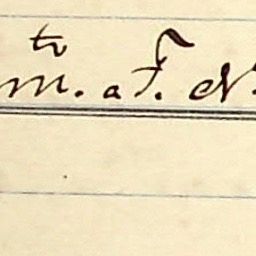 to
m. a F. N.